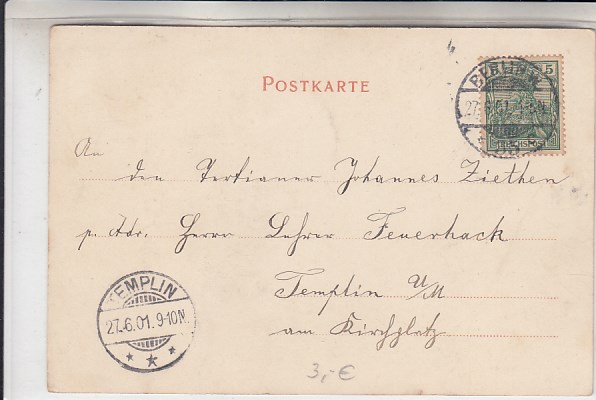 POSTKARTE
5
BERLIN W
27.6.01. N
REICHSPOST
An
den Tertianer Johannes Ziethen
p. Adr. Herrn Lehrer Feuerhack
Templin U/M
am Kirchplatz
TEMPLIN
27.6.01.9-10N.
* * *
3,-€